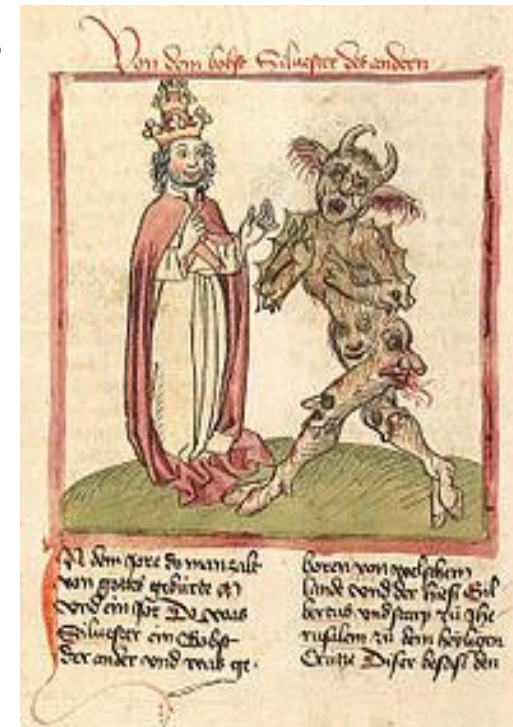 Von dem bobst Siluester des andern
In dem Jore do man zalt
von gottes gebürte M
vnd ein Jor Do was
Siluester ein Bobst
der ander vnd was ge-
boren von welschem
lande vnd der hies Gil
bertus vnd starp zü Jhe
rusalem zü dem heyligen
Crütze Diser besass den